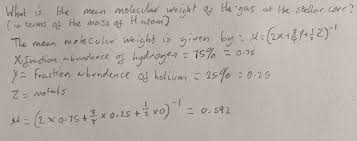 What is the mean molecular weight of the gas at the stellar core?
(in terms of the mass of H atom)
The mean molecular weight is given by: μ=(2X+¾Y+½Z)⁻¹
X=fraction abundance of hydrogen = 75% = 0.75
Y= fraction abundance of helium = 25% = 0.25
Z= metals
μ=(2 x 0.75 + ¾ x 0.25 + ½ x 0)⁻¹ = 0.592